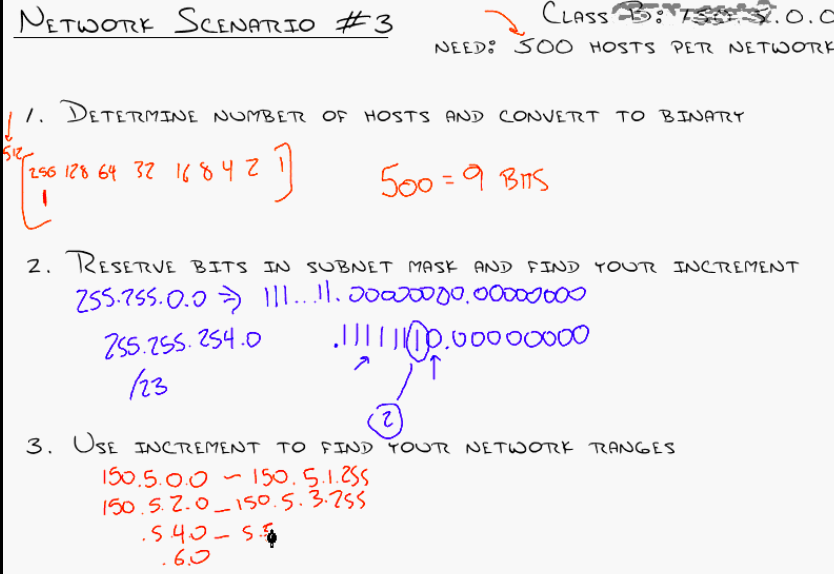 NETWORK SCENARIO #3
CLASS B: .0.0
NEED: 500 HOSTS PER NETWORK
1. DETERMINE NUMBER OF HOSTS AND CONVERT TO BINARY
512
256 128 64 32 16 8 4 2 1
1
500 = 9 BITS
2. RESERVE BITS IN SUBNET MASK AND FIND YOUR INCREMENT
255.255.0.0 => 111...11.00000000.00000000
255.255.254.0 .11111110.00000000
/23
2
3. USE INCREMENT TO FIND YOUR NETWORK RANGES
150.5.0.0 - 150.5.1.255
150.5.2.0 - 150.5.3.255
.5.4.0 - 5.5
.6.0